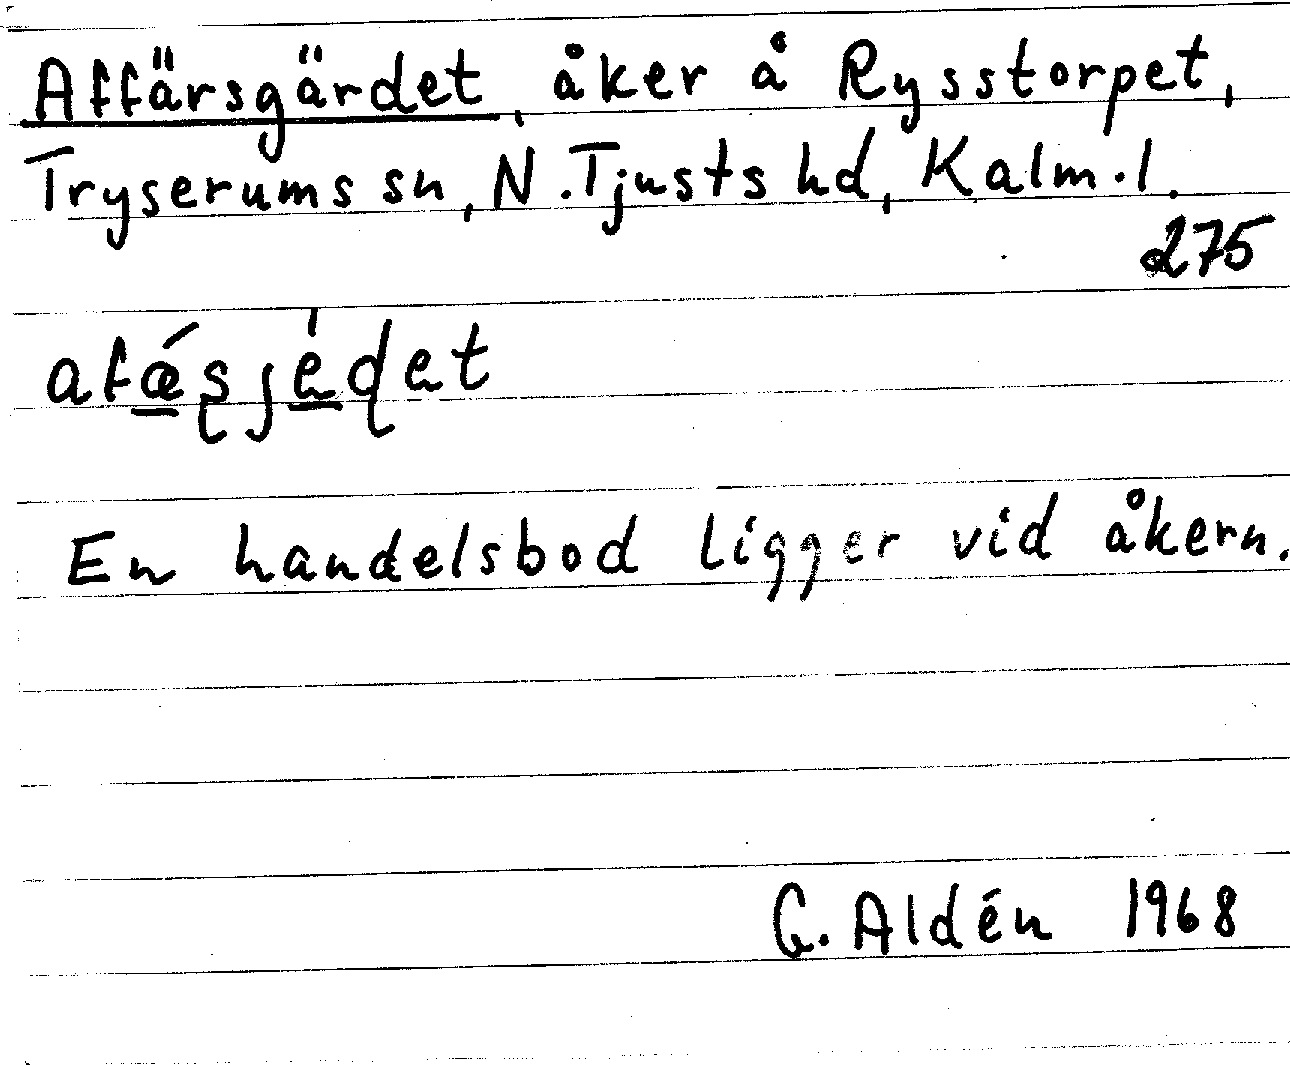 Affärsgärdet, åker å Rysstorpet,
Tryserums sn, N. Tjusts hd, Kalm. l.
275
En handelsbod ligger vid åkern.
G. Aldén 1968